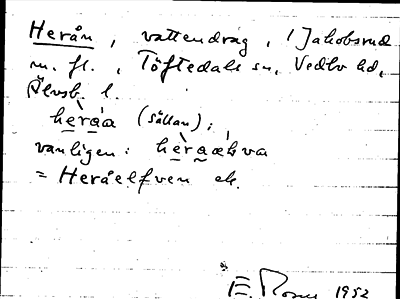 Herån, vattendrag, i Jakobsrud
m. fl., Töftedals sn, Vedbo hd,
Älvsb. l.
heràa (sällan);
vanligen: heràækva
= Heråelfven ek.
E. Rosm 1952